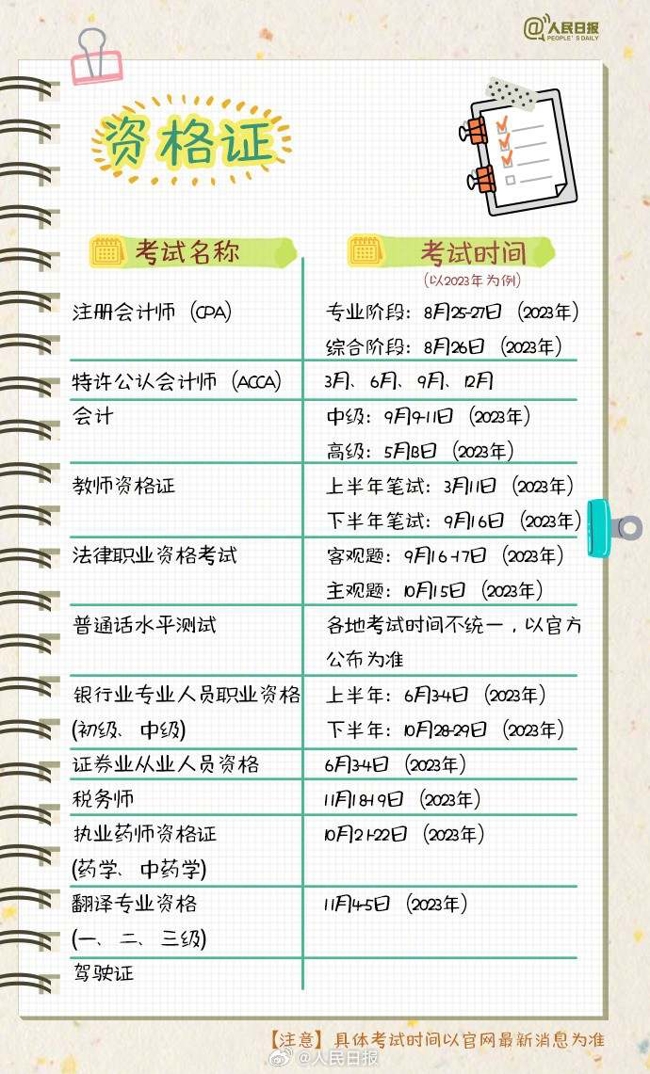 @人民日报
PEOPLE'S DAILY
资格证
考试名称 考试时间
(以2023年为例)
注册会计师（CPA） 专业阶段：8月25-27日（2023年）
综合阶段：8月26日（2023年）
特许公认会计师（ACCA） 3月、6月、9月、12月
会计 中级：9月9-11日（2023年）
高级：5月13日（2023年）
教师资格证 上半年笔试：3月11日（2023年）
下半年笔试：9月16日（2023年）
法律职业资格考试 客观题：9月16-17日（2023年）
主观题：10月15日（2023年）
普通话水平测试 各地考试时间不统一，以官方
公布为准
银行业专业人员职业资格 上半年：6月3-4日（2023年）
(初级、中级) 下半年：10月28-29日（2023年）
证券业从业人员资格 6月3-4日（2023年）
税务师 11月18-19日（2023年）
执业药师资格证 10月21-22日（2023年）
(药学、中药学)
翻译专业资格 11月4-5日（2023年）
(一、二、三级)
驾驶证
【注意】具体考试时间以官网最新消息为准
@人民日报